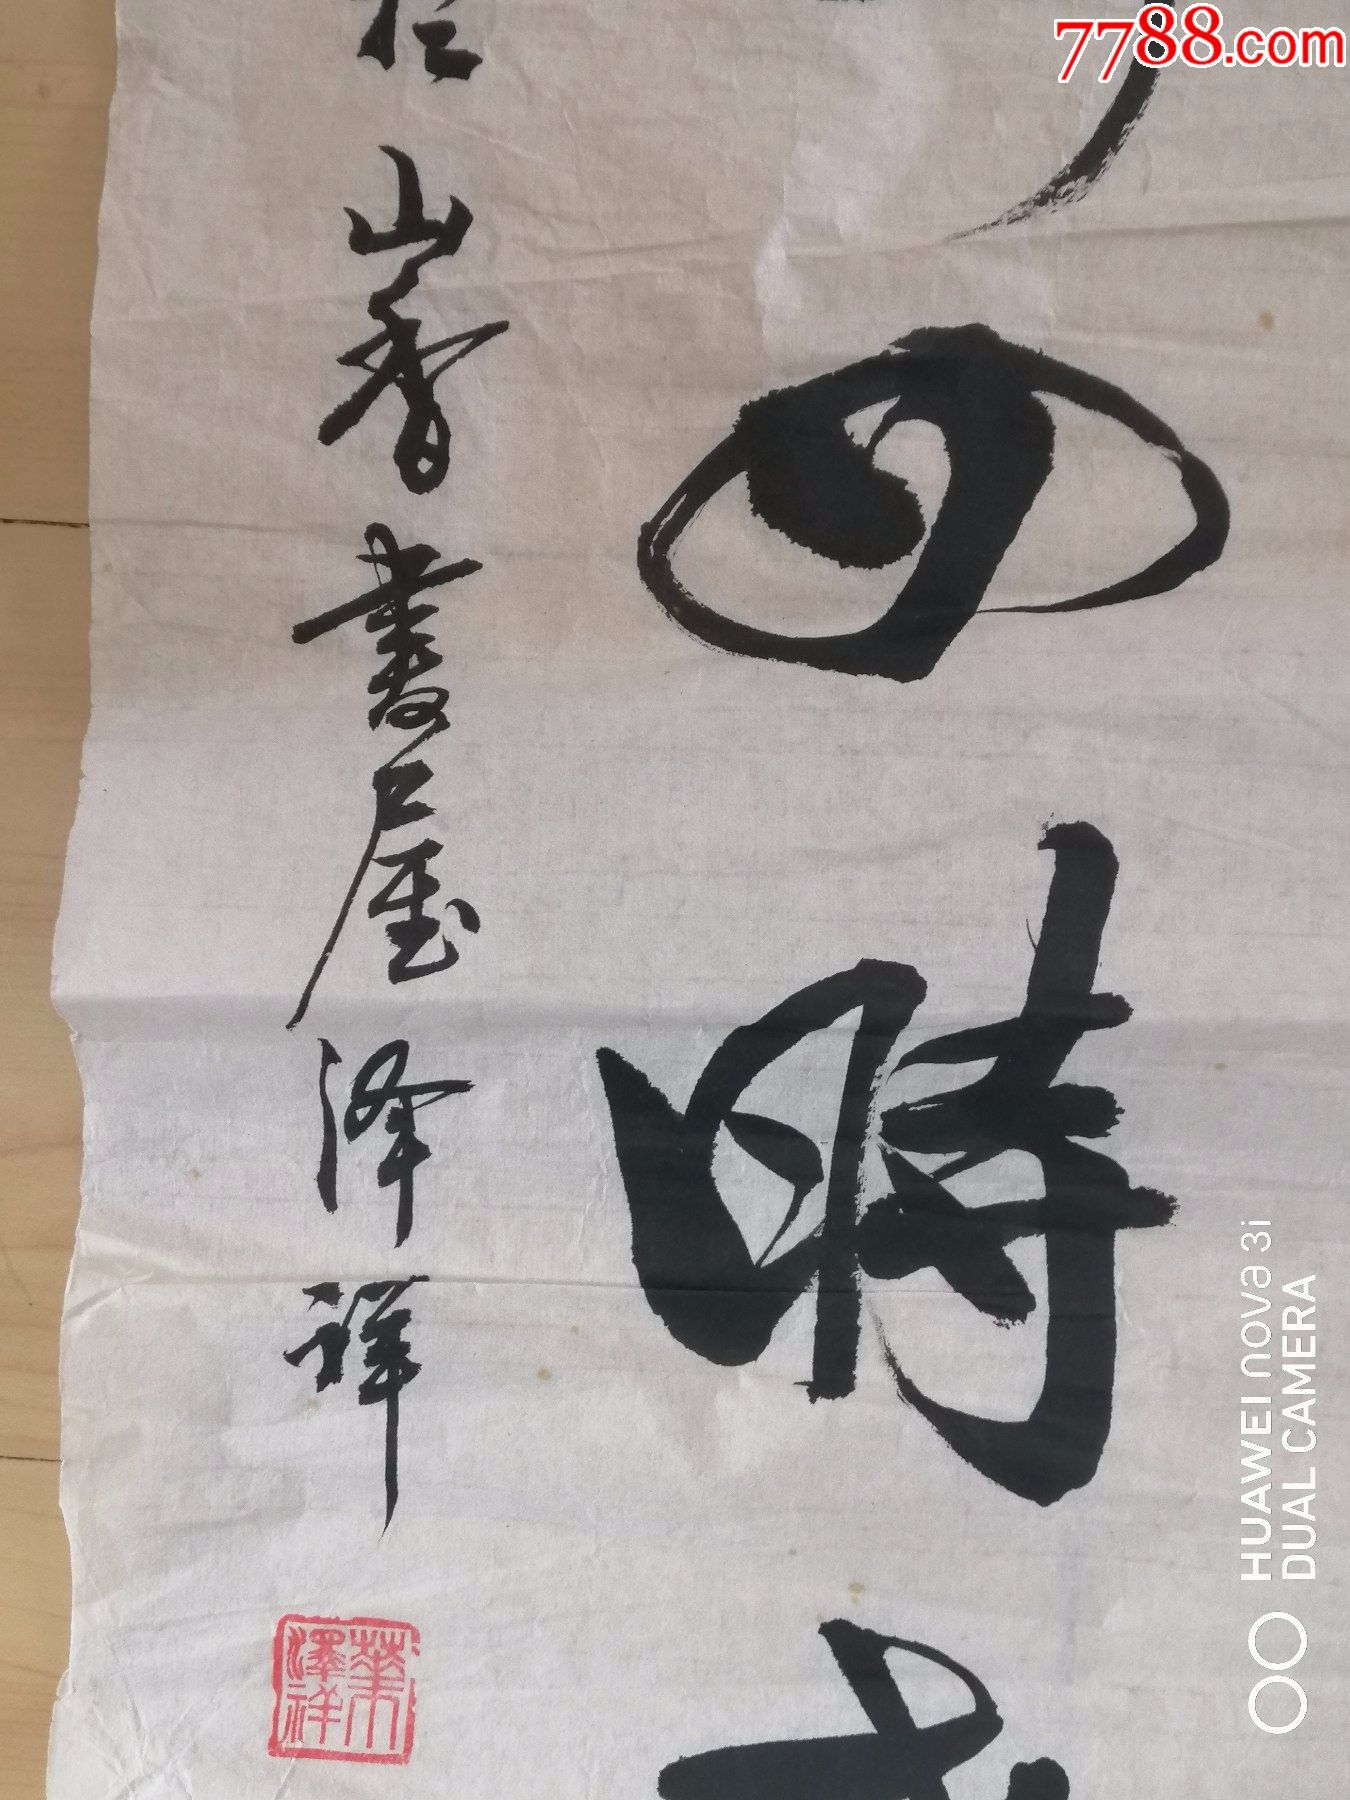 7788.com
四时
于山香書屋泽祥
葉澤祥
HUAWEI nova 3i
DUAL CAMERA